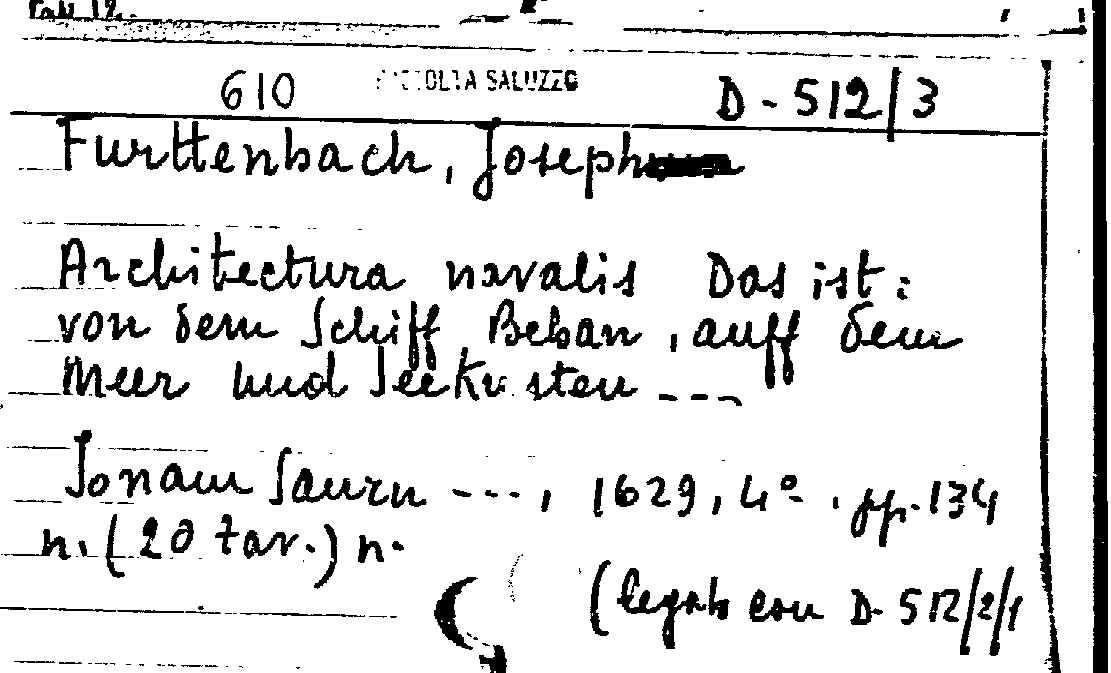 610 RACCOLTA SALUZZO D-512/3
Furttenbach, Joseph
Architectura navalis Das ist:
von dem Schiff Beban, auff dem
Meer und Seekusten ---
Jonam Saurn ---, 1629, 4º. pp. 134
n. (20 tav.) n.
(legato con D-512/2/1